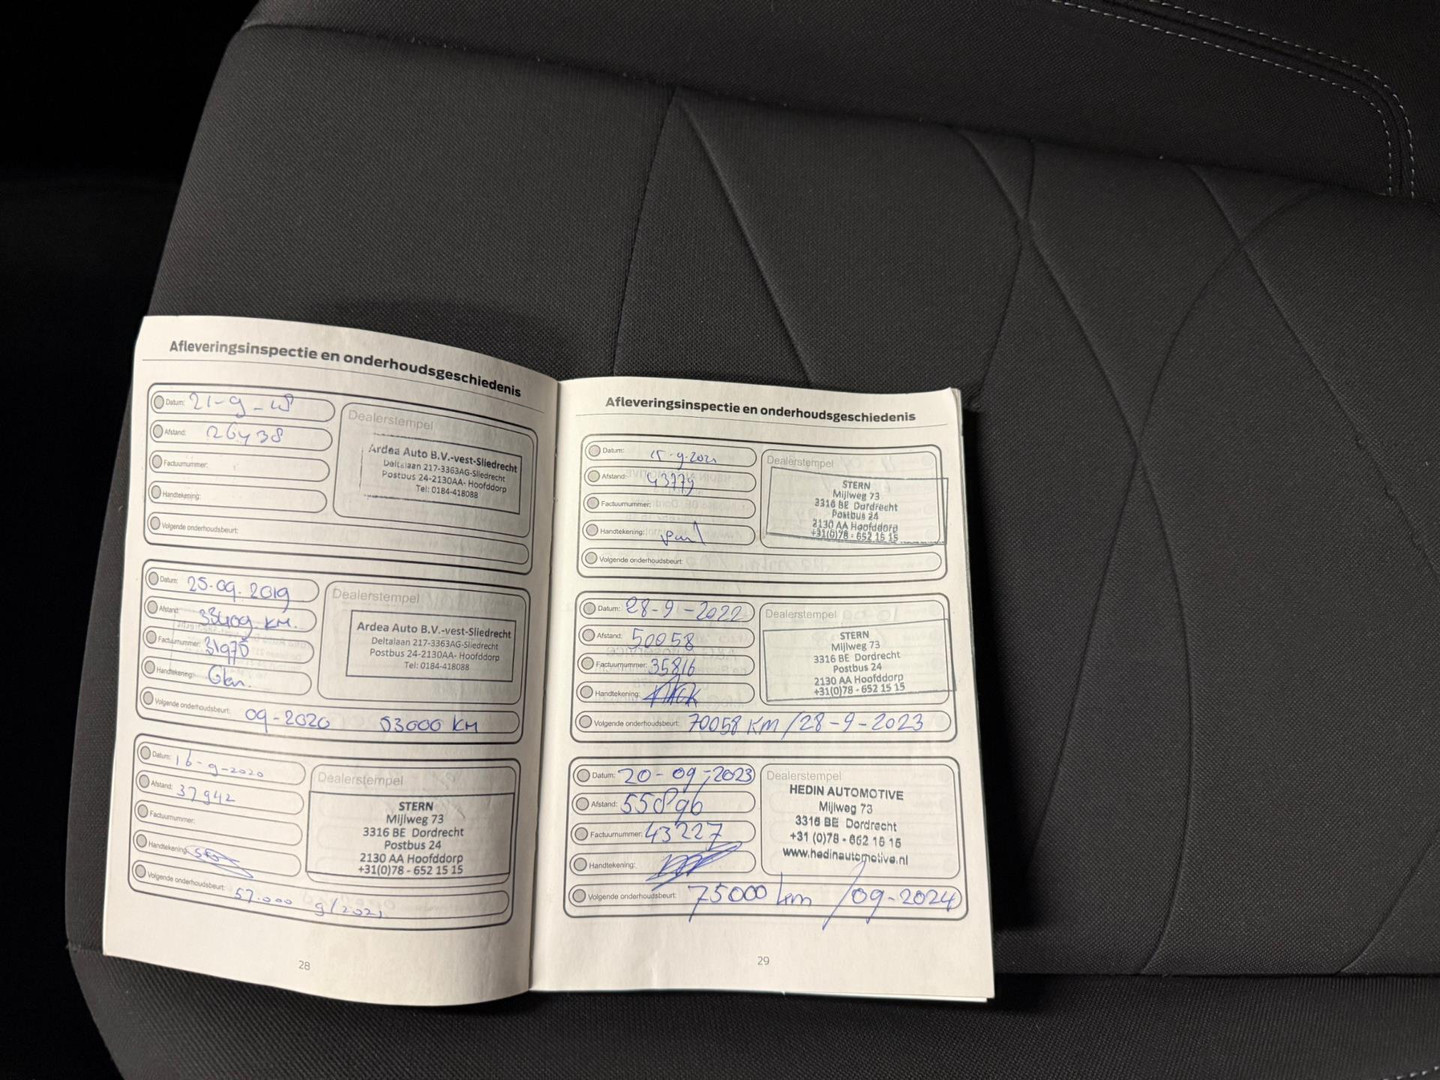 Afleveringsinspectie en onderhoudsgeschiedenis
Datum: 21-9-18
Afstand: 26438
Factuurnummer:
Handtekening:
Volgende onderhoudsbeurt:
Dealerstempel
Ardea Auto B.V.-vest-Sliedrecht
Deltalaan 217-3363AG-Sliedrecht
Postbus 24-2130AA- Hoofddorp
Tel: 0184-418088
Datum: 25-09-2019
Afstand: 33409 KM.
Factuurnummer: 31975
Handtekening:
Volgende onderhoudsbeurt: 09-2020 53000 KM
Dealerstempel
Ardea Auto B.V.-vest-Sliedrecht
Deltalaan 217-3363AG-Sliedrecht
Postbus 24-2130AA- Hoofddorp
Tel: 0184-418088
Datum: 16-9-2020
Afstand: 37942
Factuurnummer:
Handtekening:
Volgende onderhoudsbeurt: 57.000 9/2021
Dealerstempel
STERN
Mijlweg 73
3316 BE Dordrecht
Postbus 24
2130 AA Hoofddorp
+31(0)78 - 652 15 15
28
Afleveringsinspectie en onderhoudsgeschiedenis
Datum: 15-9-2021
Afstand: 43779
Factuurnummer:
Handtekening:
Volgende onderhoudsbeurt:
Dealerstempel
STERN
Mijlweg 73
3316 BE Dordrecht
Postbus 24
2130 AA Hoofddorp
+31(0)78 - 652 15 15
Datum: 28-9-2022
Afstand: 50058
Factuurnummer: 35816
Handtekening:
Volgende onderhoudsbeurt: 70058 KM/28-9-2023
Dealerstempel
STERN
Mijlweg 73
3316 BE Dordrecht
Postbus 24
2130 AA Hoofddorp
+31(0)78 - 652 15 15
Datum: 20-09-2023
Afstand: 55896
Factuurnummer: 43227
Handtekening:
Volgende onderhoudsbeurt: 75000 km /09-2024
Dealerstempel
HEDIN AUTOMOTIVE
Mijlweg 73
3316 BE Dordrecht
+31 (0)78 - 652 15 15
www.hedinautomotive.nl
29